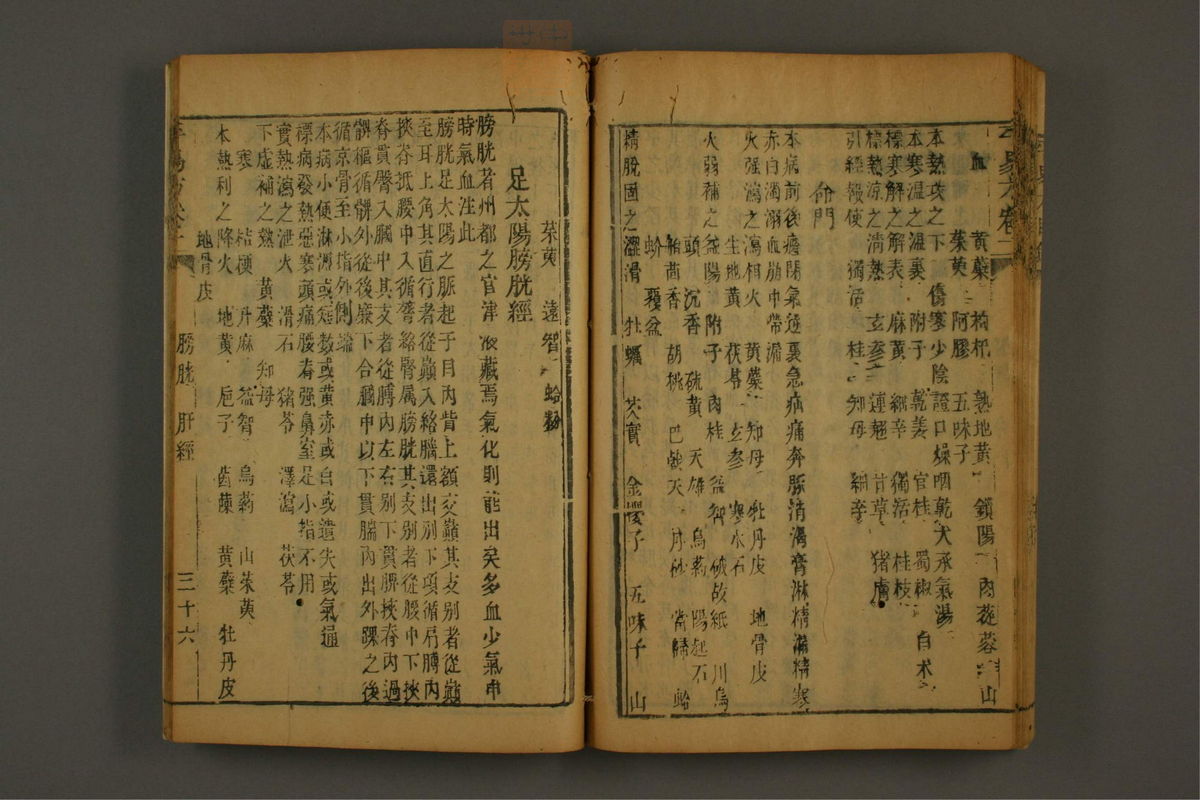 血 黃蘗 枸杞 熟地黃 鎖陽 肉蓯蓉 山
茱萸 阿膠 五味子
本熱攻之下 傷寒少陰證口燥咽乾大承氣湯
本寒溫之溫裏 附子 乾姜 官桂 蜀椒 白术
標寒解之解表 麻黃 細辛 獨活 桂枝
標熱涼之清熱 玄參 連翹 甘草 猪膚
引經報使 獨活 桂 知母 細辛
命門
本病前後癃閉氣逆裏急疝痛奔豚消渴膏淋精漏精寒
赤白濁溺血崩中帶漏
火强瀉之瀉相火 黃蘗 知母 牡丹皮 地骨皮
生地黃 茯苓 玄參 寒水石
火弱補之益陽 附子 肉桂 益智 破故紙 川烏
頭 沉香 硫黃 天雄 烏藥 陽起石
舶茴香 胡桃 巴戟天 丹砂 當歸 蛤
蚧 覆盆
精脫固之澀滑 牡蠣 芡實 金櫻子 五味子 山
茱萸 遠智 蛤粉
足太陽膀胱經
膀胱者州都之官津液藏焉氣化則能出矣多血少氣申
時氣血注此
膀胱足太陽之脈起于目內眥上額交巔其支別者從巔
至耳上角其直行者從巔入絡腦還出別下項循肩膊內
挾脊抵腰中入循膂絡腎属膀胱其支別者從腰中下挾
脊貫臀入膕中其支者從膊內左右別下貫胛挾脊內過
髀樞循髀外從後廉下合膕中以下貫腨內出外踝之後
循京骨至小指外側端
本病小便淋瀝或短數或黃赤或白或遺失或氣通
標病發熱惡寒頭痛腰脊强鼻窒足小指不用
實熱瀉之泄火 滑石 猪苓 澤瀉 茯苓
下虚補之熱 黃蘗 知母
寒 桔梗 升麻 益智 烏藥 山茱萸
本熱利之降火 地黃 梔子 茵蔯 黃蘗 牡丹皮
地骨皮
膀胱 肝經 三十六